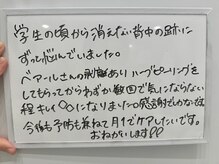 学生の頃から消えない背中の跡に
ずっと悩んでいました。
ベアールさんの剥離ありハーブピーリングを
してもらってからわずか数回で気にならない
程キレイになりました。感謝しかないです
今後も予防も兼ねて月1でケアしたいです。
おねがいします!!